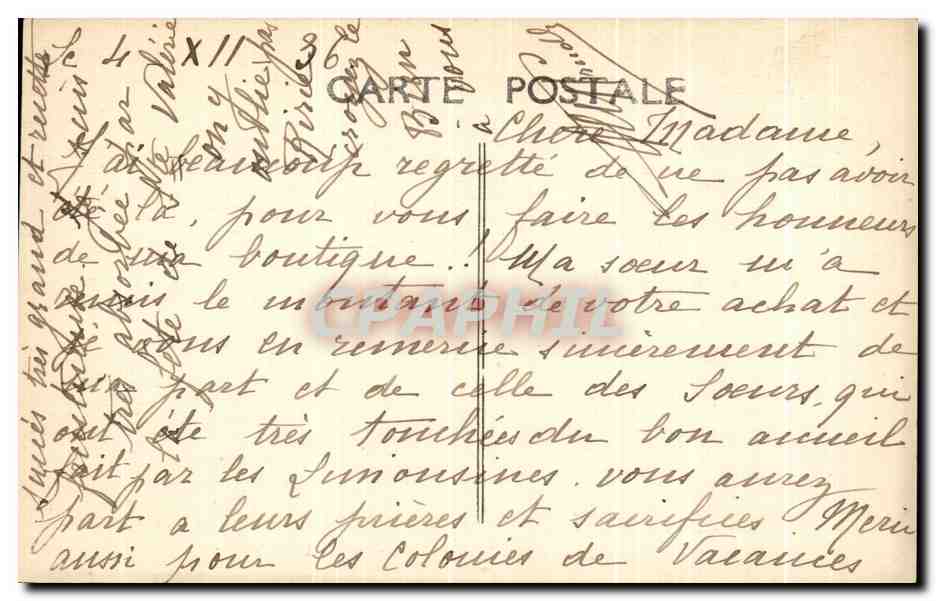 Le 4 XII 36
CARTE POSTALE
Chère Madame,
J'ai beaucoup regretté de ne pas avoir
été là, pour vous faire les honneurs
de ma boutique..! Ma sœur m'a
remis le montant de votre achat et
je vous en remercie sincèrement de
ma part et de celle des Sœurs, qui
ont été très touchées du bon accueil
fait par les Limousines. vous aurez
part a leurs prières et sacrifices Merci
aussi pour les Colonies de Vacances
CPAPHIL
Succès très grand et recette
Je suis
très absorbée par
la fête de Ste Valérie
on n'y
oublie pas
vous